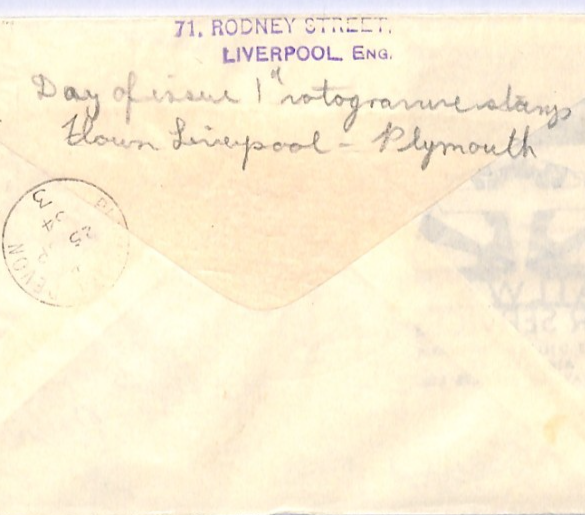 71, RODNEY STREET,
LIVERPOOL, ENG.
Day of issue 1d rotogravure stamp
Flown Liverpool - Plymouth
DEVON